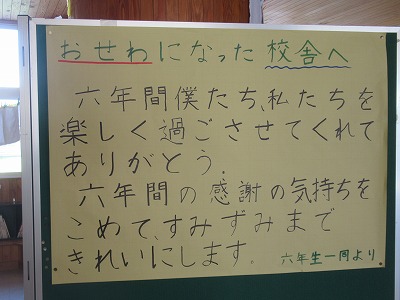 おせわになった校舎へ
六年間僕たち、私たちを
楽しく過ごさせてくれて
ありがとう.
六年間の感謝の気持ちを
こめて、すみずみまで
きれいにします。
六年生一同より